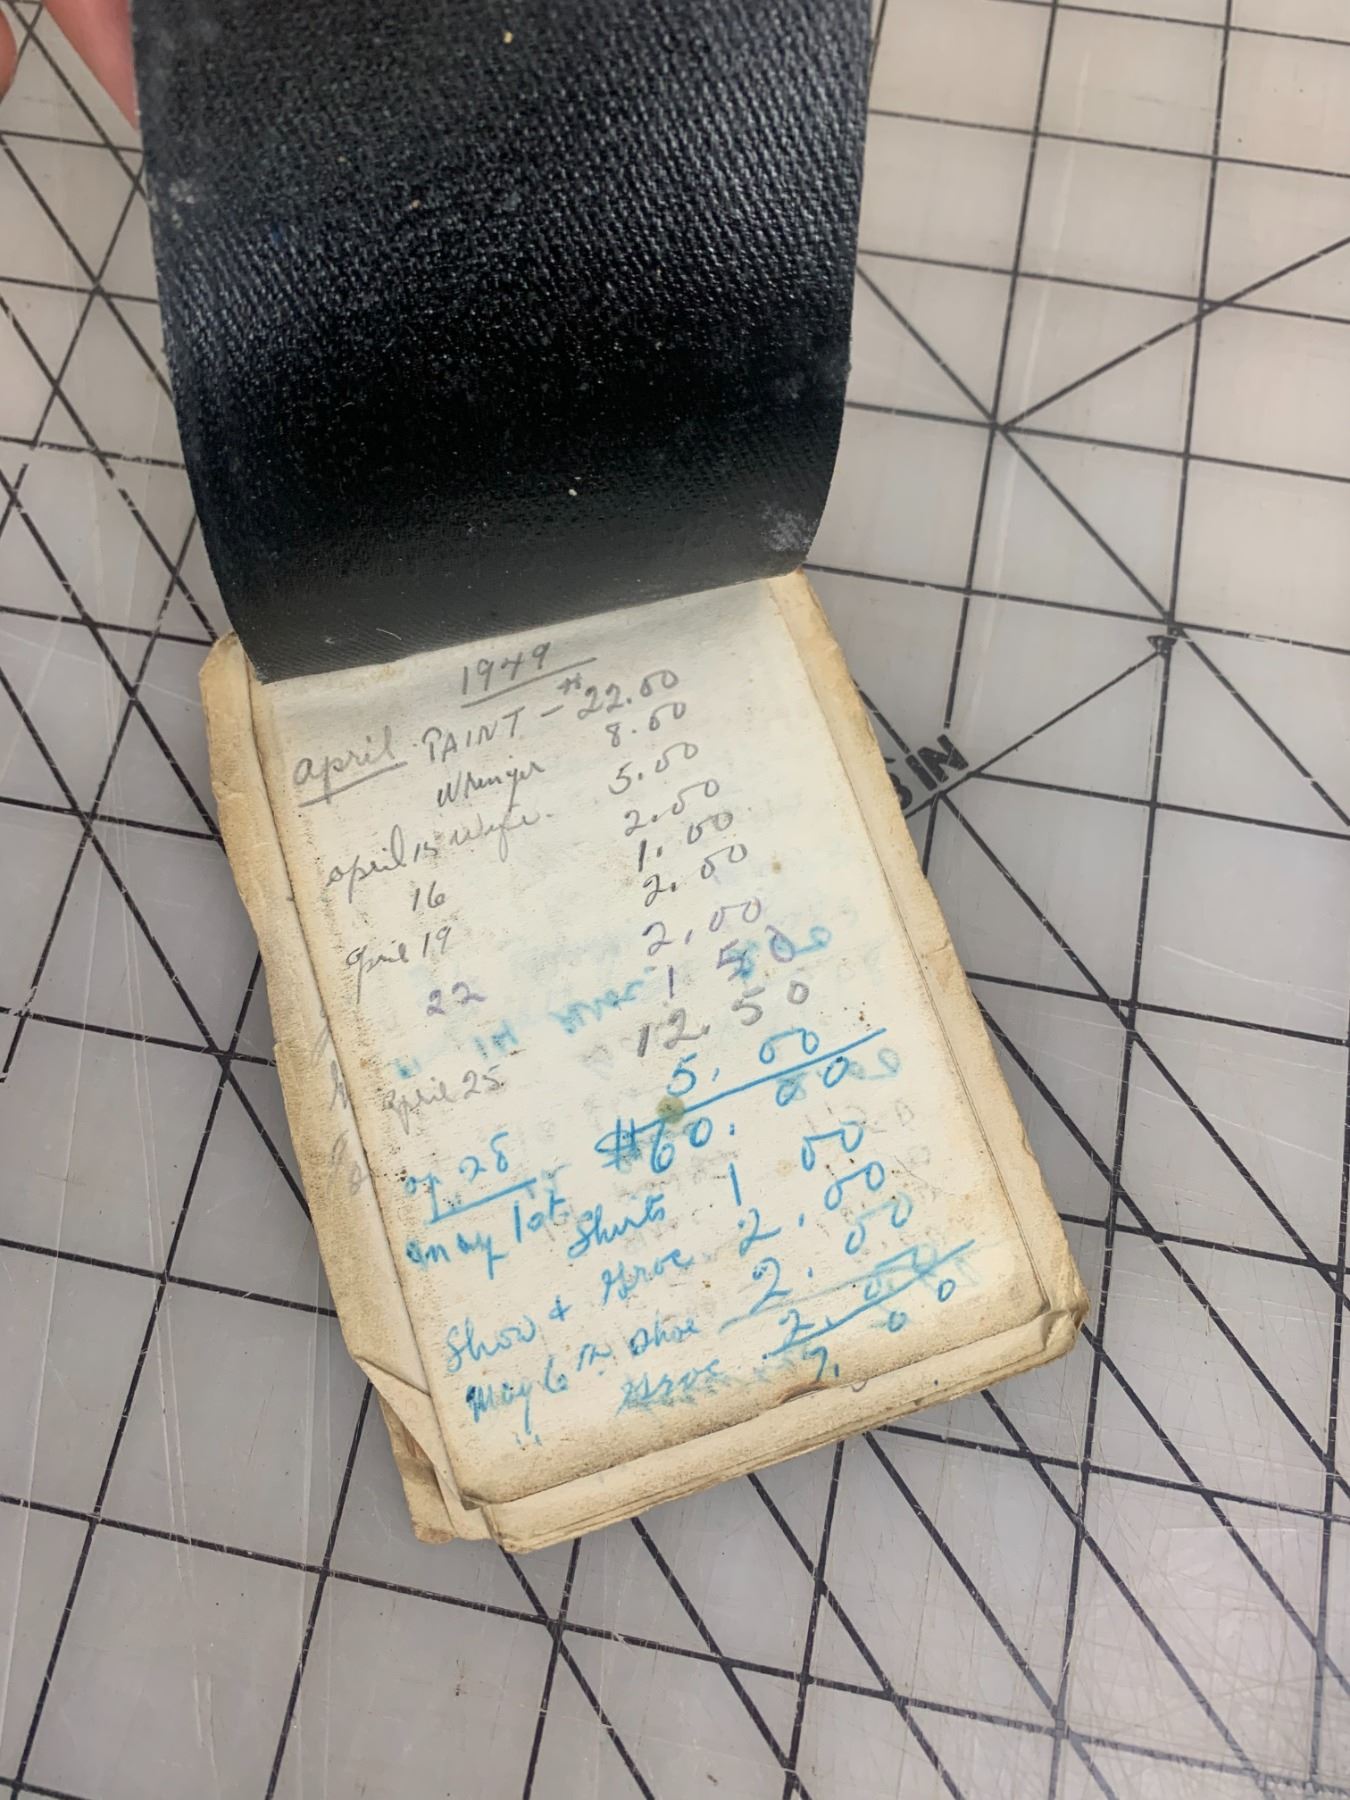 1949
april PAINT — $22.00
Wringer 8.00
april 15 Wife. 5.00
16 2.00
1.00
april 19 2.00
22 2.00
1 50
april 25 12.50
ap. 28 5.00
$60.00
may 1st Shirts 1 00
Show + Groc 2.00
May 6 shoe 2.00
" Groc 2.00
7.00
5 IN